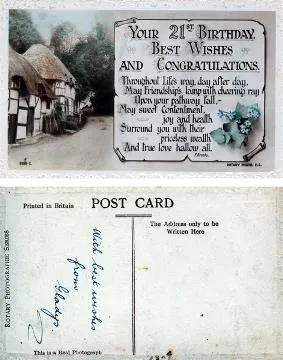 Your 21st Birthday.
Best Wishes
and Congratulations.
Throughout Life's way, day after day,
May friendship's lamp with cheering ray
Upon your pathway fall,—
May sweet contentment,
joy and health
Surround you with their
priceless wealth
And true love hallow all.
ROTARY PHOTO, E.C.
Printed in Britain
POST CARD
The Address only to be
Written Here
ROTARY PHOTOGRAPHIC SERIES
With best wishes
from
Gladys.
This is a Real Photograph